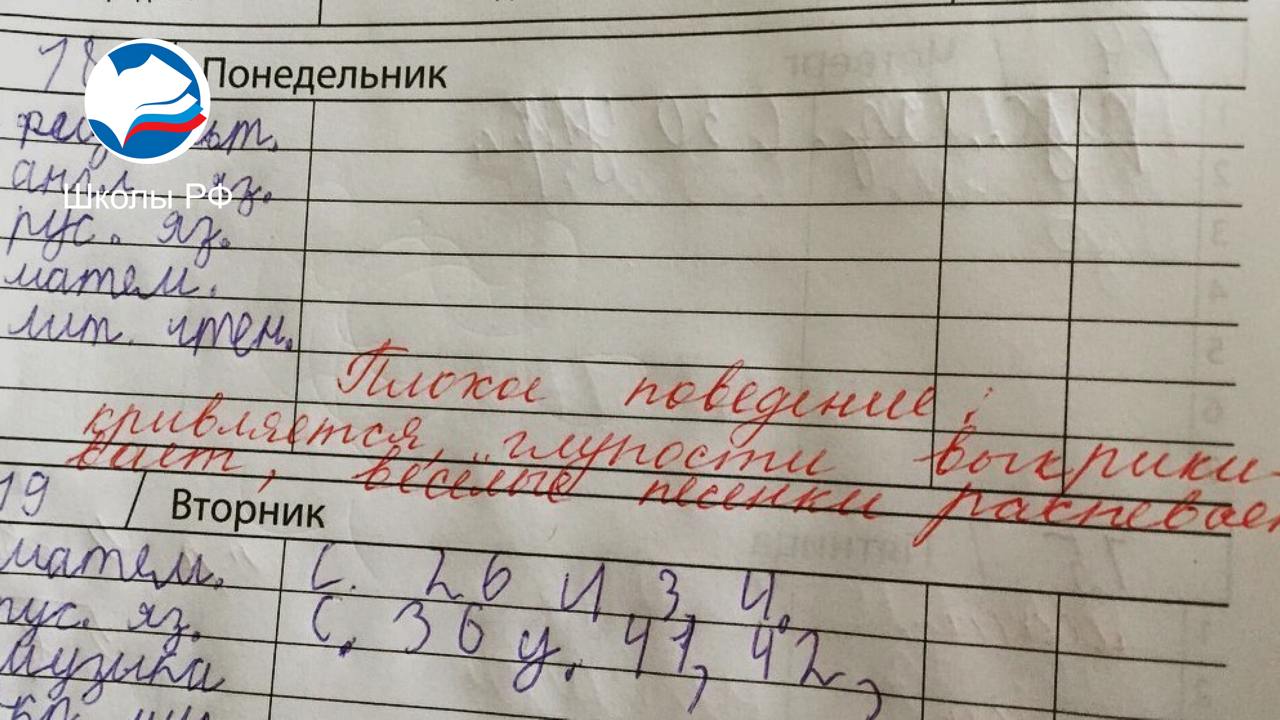 18 Понедельник
англ. яз.
рус. яз.
матем.
лит. чтен.
Школы РФ
Плохое поведение:
кривляется, глупости выкрики-
вает, весёлые песенки распевает
19 Вторник
матем. С. 26 И. 3, И.
рус. яз. С. 36 у. 41, 42,
музыка